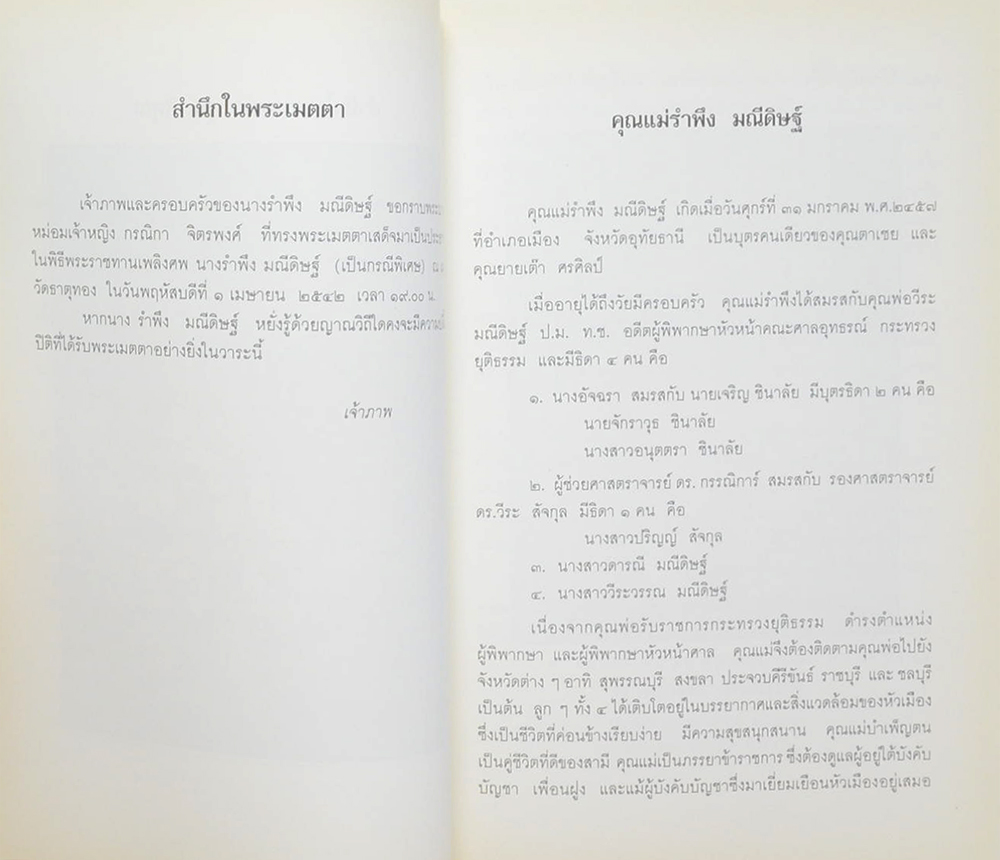 สำนึกในพระเมตตา
เจ้าภาพและครอบครัวของนางรำพึง มณีดิษฐ์ ขอกราบพระ
หม่อมเจ้าหญิง กรณิกา จิตรพงศ์ ที่ทรงพระเมตตาเสด็จมาเป็น
ในพิธีพระราชทานเพลิงศพ นางรำพึง มณีดิษฐ์ (เป็นกรณีพิเศษ) ณ
วัดธาตุทอง ในวันพฤหัสบดีที่ ๑ เมษายน ๒๕๔๒ เวลา ๑๙.๐๐ น.
หากนาง รำพึง มณีดิษฐ์ หยั่งรู้ด้วยญาณวิถีใดคงจะมีความ
ปิติที่ได้รับพระเมตตาอย่างยิ่งในวาระนี้
เจ้าภาพ
คุณแม่รำพึง มณีดิษฐ์
คุณแม่รำพึง มณีดิษฐ์ เกิดเมื่อวันศุกร์ที่ ๓๑ มกราคม พ.ศ.๒๔๕๗
ที่อำเภอเมือง จังหวัดอุทัยธานี เป็นบุตรคนเดียวของคุณตาเซย และ
คุณยายเต๊า ศรศิลป์
เมื่ออายุได้ถึงวัยมีครอบครัว คุณแม่รำพึงได้สมรสกับคุณพ่อวีระ
มณีดิษฐ์ ป.ม. ท.ช. อดีตผู้พิพากษาหัวหน้าคณะศาลอุทธรณ์ กระทรวง
ยุติธรรม และมีธิดา ๔ คน คือ
๑. นางอัจฉรา สมรสกับ นายเจริญ ชินาลัย มีบุตรธิดา ๒ คน คือ
นายจักราวุธ ชินาลัย
นางสาวอนุตตรา ชินาลัย
๒. ผู้ช่วยศาสตราจารย์ ดร. กรรณิการ์ สมรสกับ รองศาสตราจารย์
ดร.วีระ สัจกุล มีธิดา ๑ คน คือ
นางสาวปริญญ์ สัจกุล
๓. นางสาวดารณี มณีดิษฐ์
๔. นางสาววีระวรรณ มณีดิษฐ์
เนื่องจากคุณพ่อรับราชการกระทรวงยุติธรรม ดำรงตำแหน่ง
ผู้พิพากษา และผู้พิพากษาหัวหน้าศาล คุณแม่จึงต้องติดตามคุณพ่อไปยัง
จังหวัดต่าง ๆ อาทิ สุพรรณบุรี สงขลา ประจวบคีรีขันธ์ ราชบุรี และ ชลบุรี
เป็นต้น ลูก ๆ ทั้ง ๔ ได้เติบโตอยู่ในบรรยากาศและสิ่งแวดล้อมของหัวเมือง
ซึ่งเป็นชีวิตที่ค่อนข้างเรียบง่าย มีความสุขสนุกสนาน คุณแม่บำเพ็ญตน
เป็นคู่ชีวิตที่ดีของสามี คุณแม่เป็นภรรยาข้าราชการ ซึ่งต้องดูแลผู้อยู่ใต้บังคับ
บัญชา เพื่อนฝูง และแม้ผู้บังคับบัญชาซึ่งมาเยี่ยมเยือนหัวเมืองอยู่เสมอ